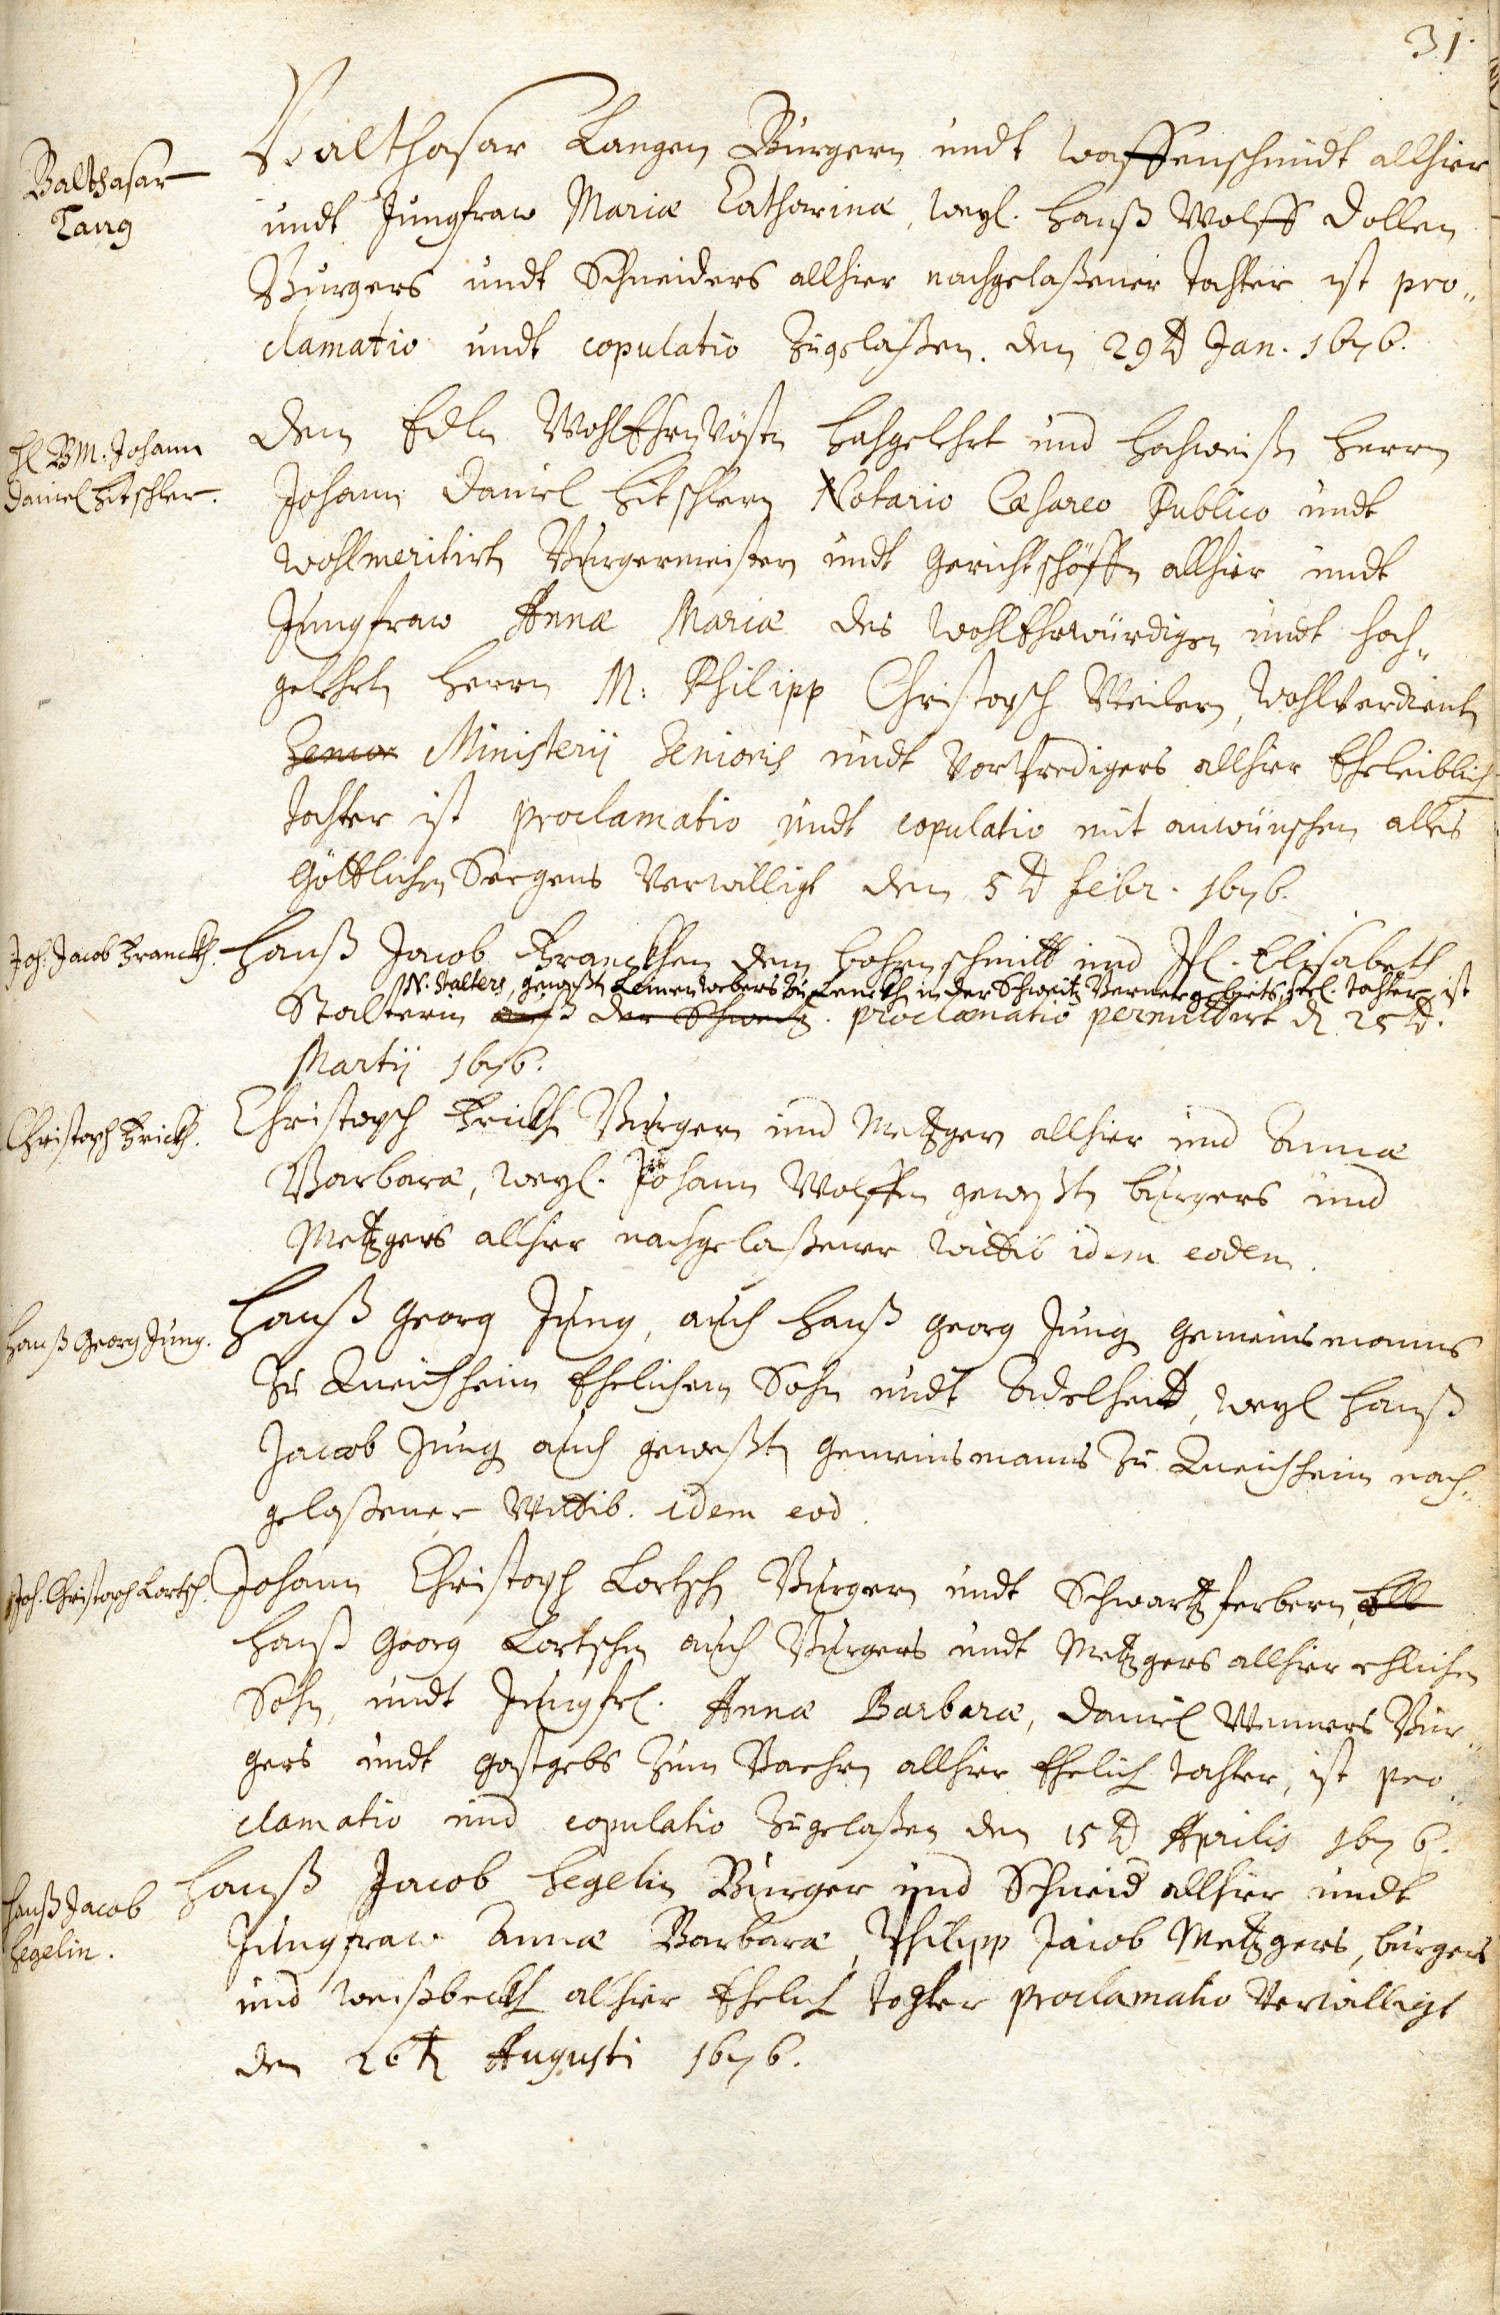 31.
Balthasar
Lang
Balthasar Langen Burgern undt Waffenschmidt allhier
undt Jungfraw Mariæ Catharinæ, weyl. Hanß Wolff Dollen
Burgers undt Schneiders allhier nachgelaßener Tochter ist pro„
clamatio undt copulatio zugelaßen. den 29 Jan. 1676.
H BM. Johann
Daniel Hitschler.
Dem Edln WohlEhrnVöstn Hochgelehrt und Hochweißn Herrn
Johann Daniel Hitschlern Notario Cæsareo Publico undt
wohlmeritirtn Burgermeistern undt Gerichtschöffn allhier undt
Jungfraw Annæ Mariæ des WohlEhrwürdigen undt Hoch„
gelehrtn Herrn M: Philipp Christoph Weilern, Wohlverdientn
Senior Ministerij Senioris undt VorPredigers allhier Eheleiblich
Tochter ist proclamatio undt copulatio mit anwünschen alles
Göttlichen Seegens Verwilligt den 5 Febr. 1676.
Joh. Jacob Franckh.
Hanß Jacob Franckhen dem bohrnschmitt und Jfl. Elisabeth
N. Stalters, geweßtn Leinenwebers zu in der Schweitz Berner gebiets, ehl. Tochter ist
Stalterin auß der Schweitz. proclamatio permittirt d 25
Martij 1676.
Christoph Frickh.
Christoph Frickh Burgern und Metzgern allhier und Annæ
Barbaræ, weyl. Johann Wolffen geweßtn burgers und
Metzgers allhier nachgelaßener Wittib idem eodem.
Hanß Georg Jung.
Hanß Georg Jung, auch Hanß Georg Jung Gemeinsmanns
zu Queichheim Ehelichem Sohn undt Adelheit, weyl Hanß
Jacob Jung auch geweßtn Gemeinsmanns zu Queichheim nach„
gelaßener Wittib. idem eod.
Joh. Christoph Lortsch.
Johann Christoph Lortsch Burgern undt Schwartzferbern, all
Hanß Georg Lortschn auch Burgers undt Metzgers allhier ehlichen
Sohn, undt Jungfrl. Annæ Barbaræ, Daniel Wenners Bur„
gers undt Gastgebs zum Baehrn allhier Ehelich Tochter, ist pro„
clamatio und copulatio zugelaßen den 15 Aprilis 1676.
Hanß Jacob
Hegelin.
Hanß Jacob Hegelin Burger und Schneid allhier undt
Jungfraw Annæ Barbaræ, Philipp Jacob Metzgers, burgers
und weißbeckh allhier Ehelich Tochter proclamatio Verwilligt
den 26 Augusti 1676.